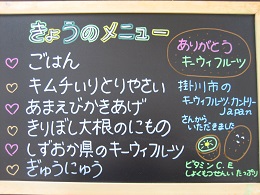 きょうのメニュー
ごはん
キムチいりとりやさい
あまえびかきあげ
きりぼし大根のにもの
しずおか県のキーウィフルーツ
ぎゅうにゅう
ありがとう
キーウィフルーツ
掛川市の
キーウィフルーツカントリー
Japan
さんから
いただきました
ビタミンC、E
しょくもつせんい たっぷり